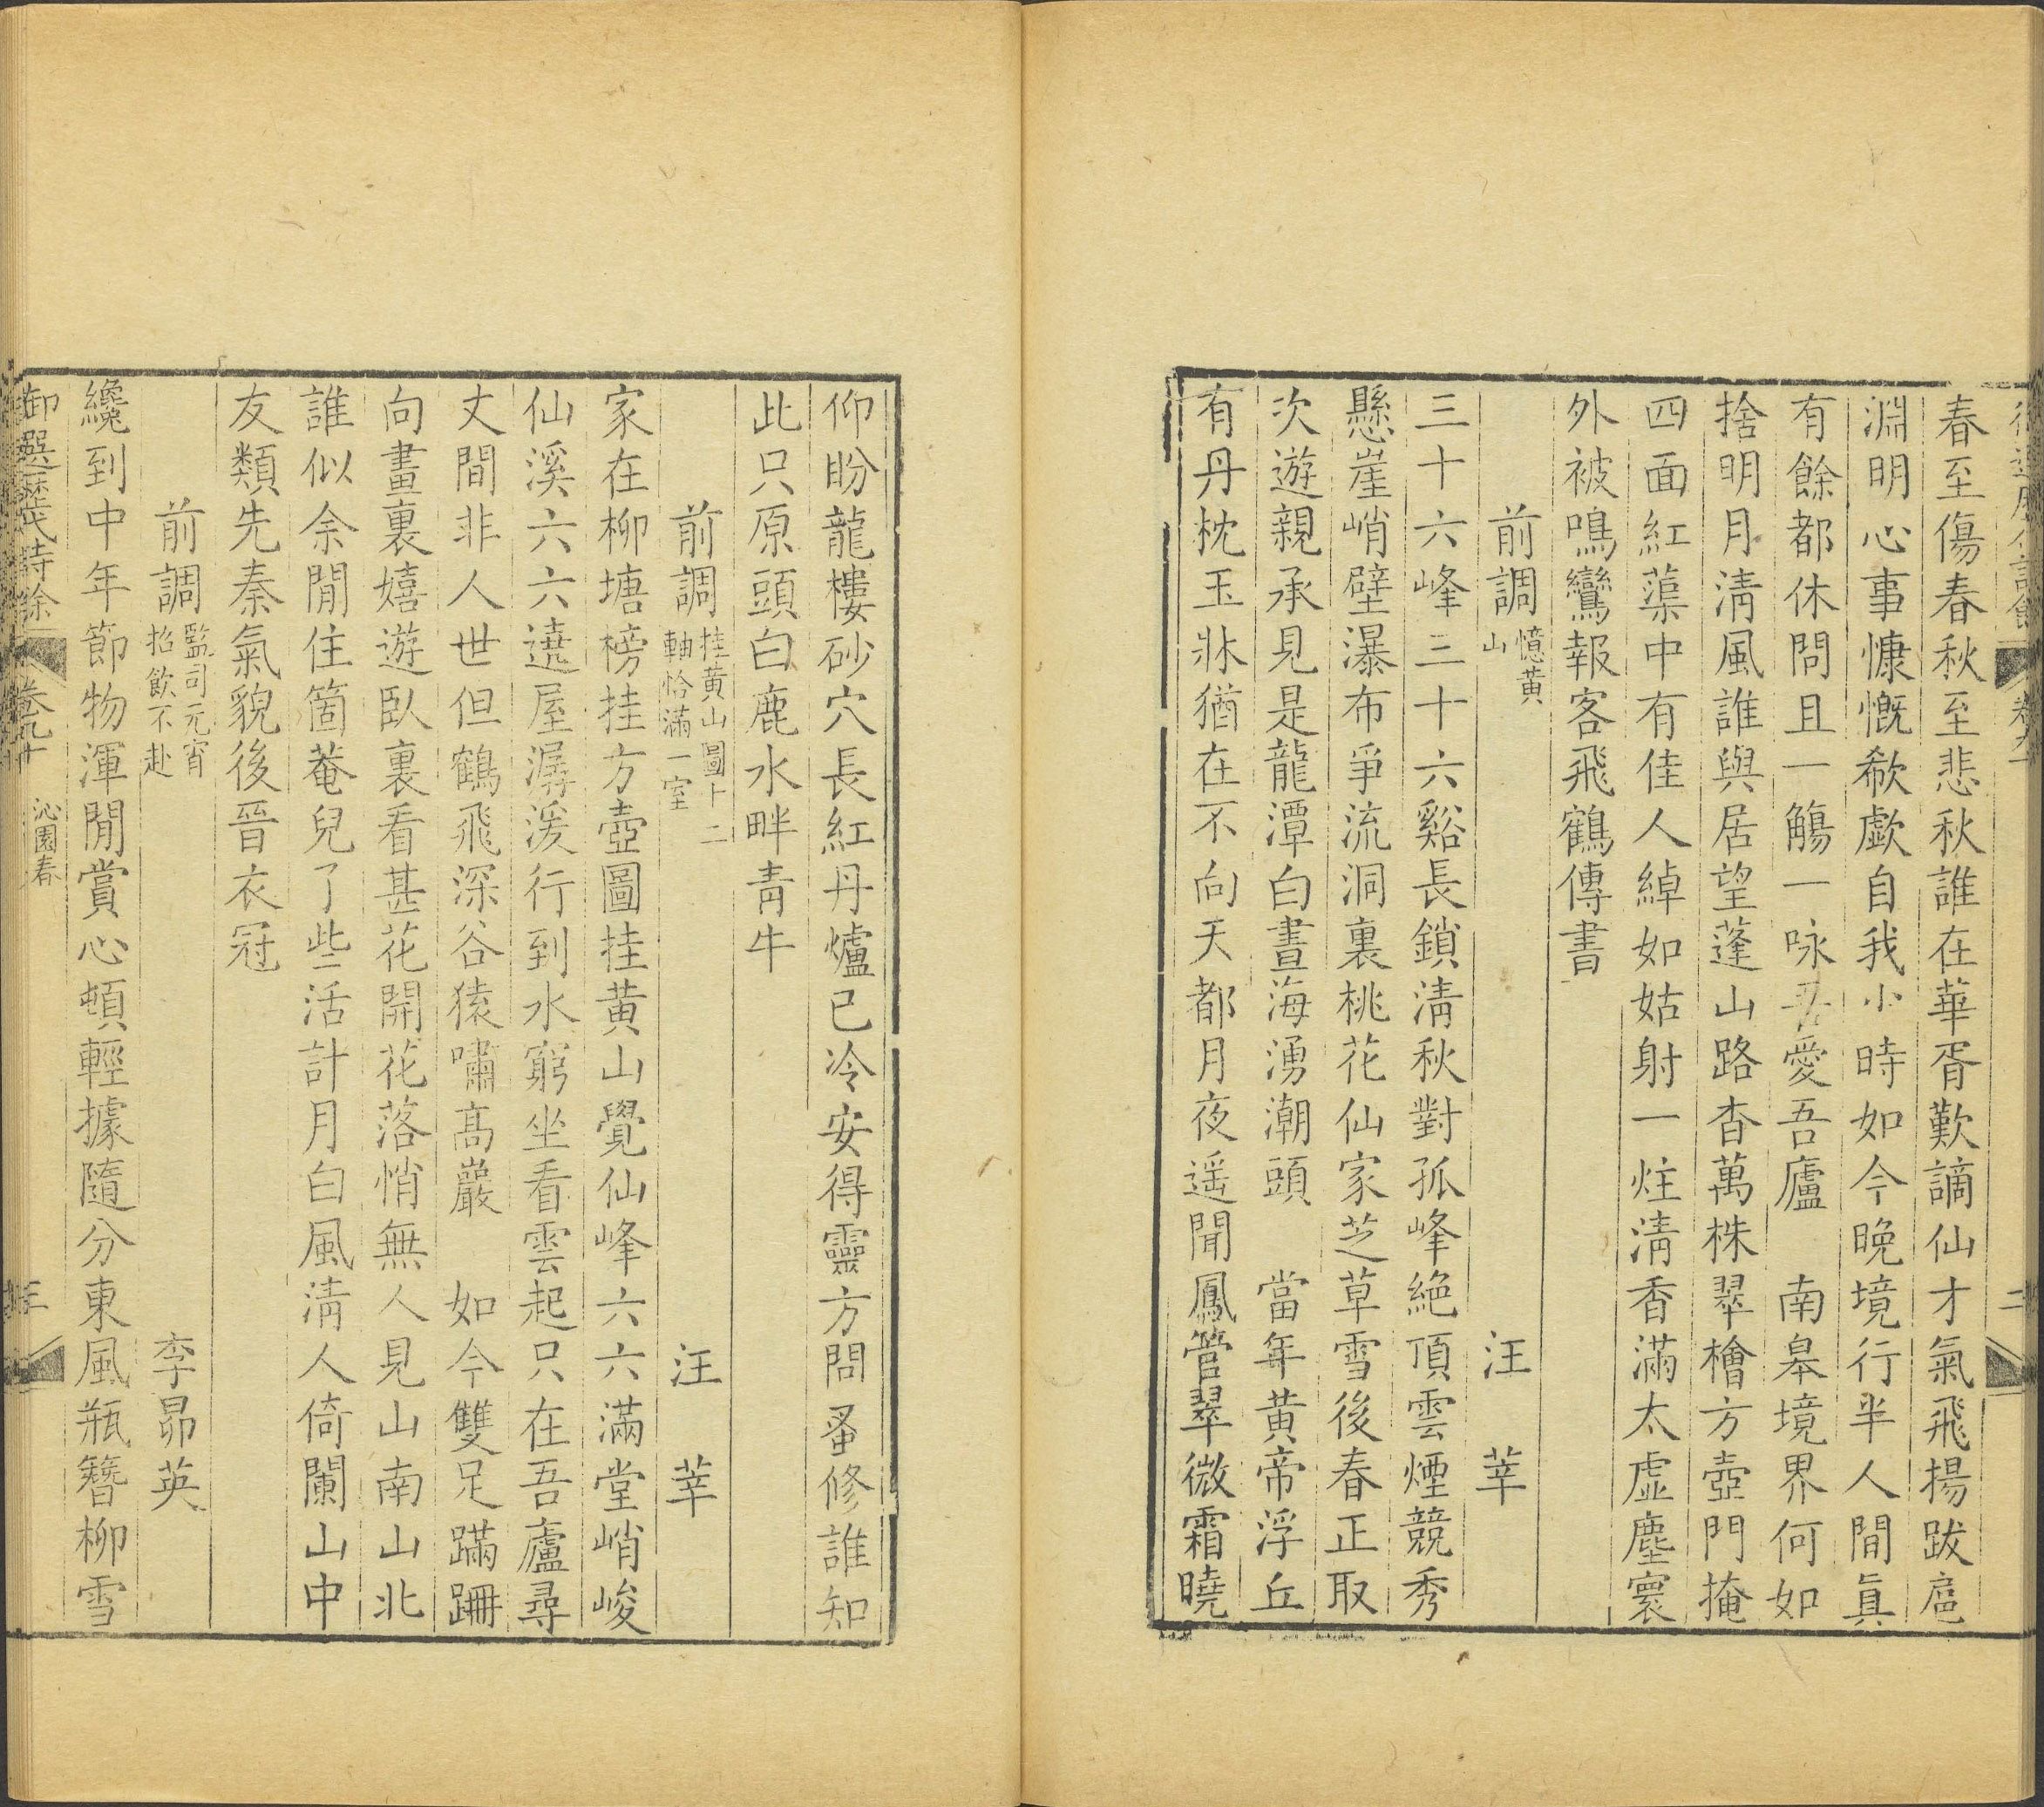 春至傷春秋至悲秋誰在華胥歎謫仙才氣飛揚跋扈
淵明心事慷慨欷歔自我小時如今晚境行半人間真
有餘都休問且一觴一咏吾愛吾廬　南皋境界何如
捨明月清風誰與居望蓬山路杳萬株翠檜方壺門掩
四面紅蕖中有佳人綽如姑射一炷清香滿太虛塵寰
外被鳴鸞報客飛鶴傳書
前調憶黃山　汪莘
三十六峰三十六谿長鎖清秋對孤峰絕頂雲煙競秀
懸崖峭壁瀑布爭流洞裏桃花仙家芝草雪後春正取
次遊親承見是龍潭白晝海湧潮頭　當年黃帝浮丘
有丹枕玉牀猶在不向天都月夜遥聞鳳管翠微霜曉
仰盼龍樓砂穴長紅丹爐已冷安得靈方問蚤修誰知
此只原頭白鹿水畔青牛
前調挂黃山圖十二軸恰滿一室　汪莘
家在柳塘榜挂方壺圖挂黃山覺仙峰六六滿堂峭峻
仙溪六六遶屋潺湲行到水窮坐看雲起只在吾廬尋
丈間非人世但鶴飛深谷猿嘯高巖　如今雙足蹣跚
向畫裏嬉遊臥裏看甚花開花落悄無人見山南山北
誰似余閒住箇菴兒了些活計月白風清人倚闌山中
友類先秦氣貌後晉衣冠
前調監司元宵招飲不赴　李昴英
纔到中年節物渾閒賞心頓輕據隨分東風瓶簪柳雪
御選歷代詩餘　卷九十　沁園春